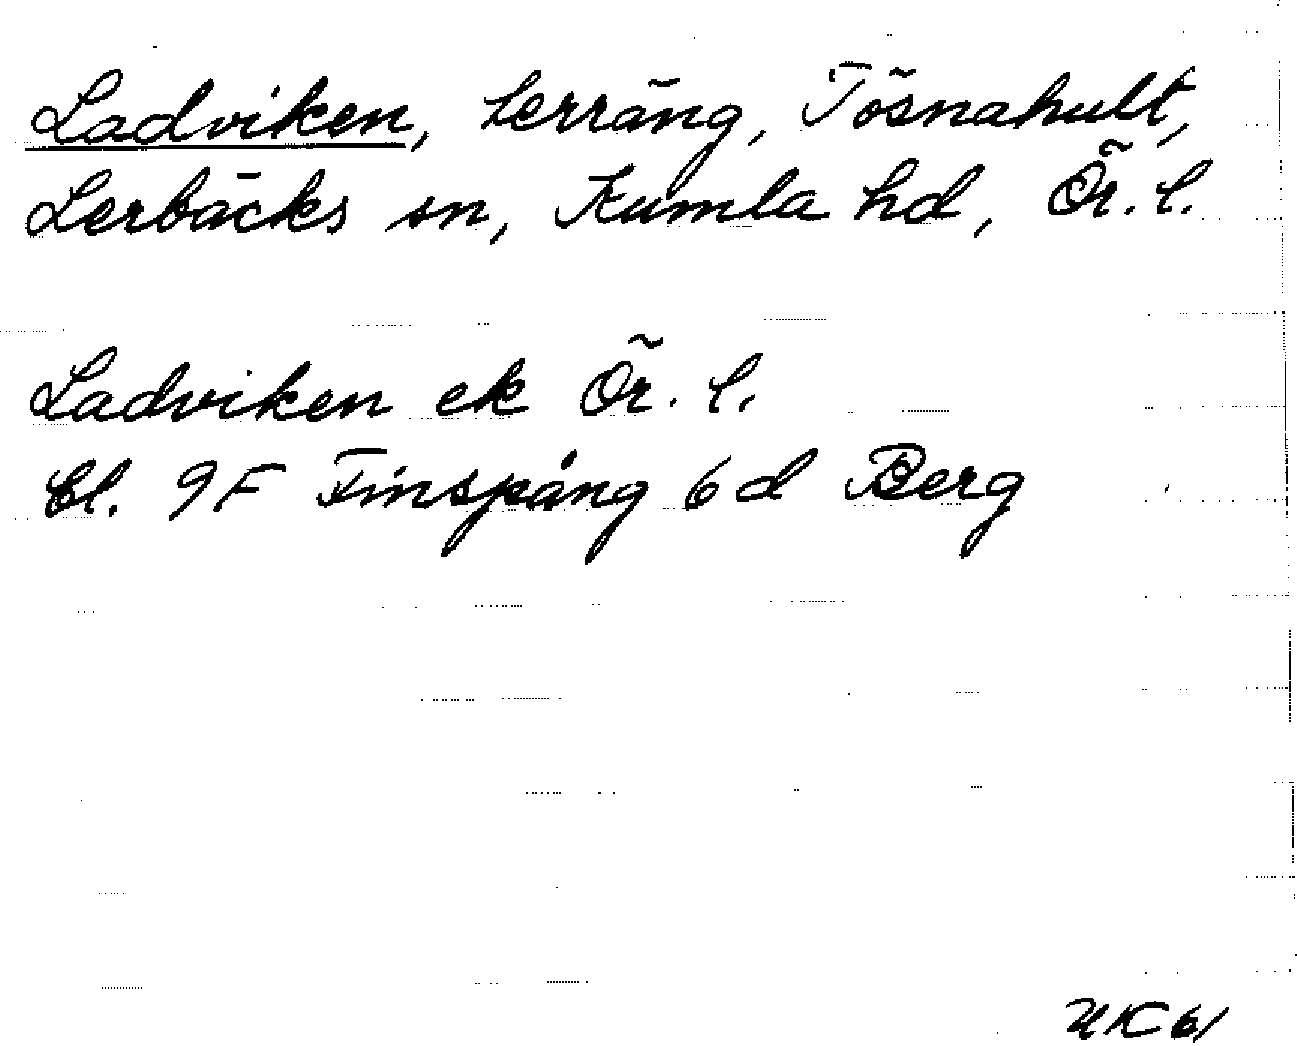 Ladviken, terräng, Tösnahult,
Lerbäcks sn, Kumla hd, Ör. l.
Ladviken ek Ör. l.
Bl. 9F Finspång 6d Berg
UK 61